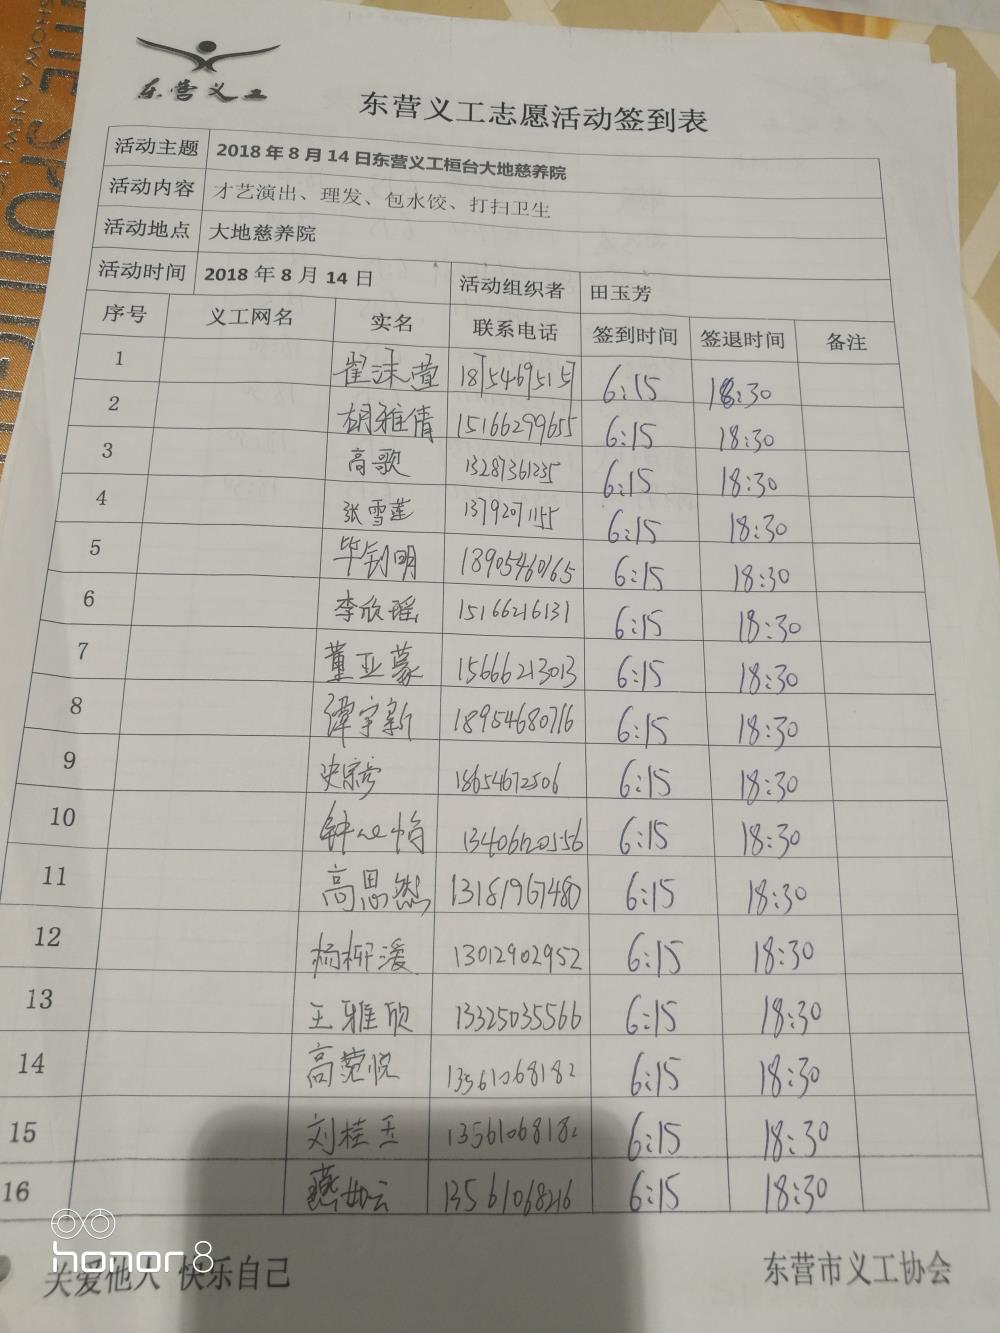 东营义工
东营义工志愿活动签到表
活动主题 2018年8月14日东营义工桓台大地慈养院
活动内容 才艺演出、理发、包水饺、打扫卫生
活动地点 大地慈养院
活动时间 2018年8月14日 活动组织者 田玉芳
序号 义工网名 实名 联系电话 签到时间 签退时间 备注
1 崔沫萱 6:15 18:30
2 胡雅倩 15166299655 6:15 18:30
3 高歌 13287361235 6:15 18:30
4 张雪莲 13792071155 6:15 18:30
5 毕钊明 18905460165 6:15 18:30
6 李欣瑶 15166216131 6:15 18:30
7 董亚蒙 15666213013 6:15 18:30
8 谭宇新 18954680716 6:15 18:30
9 18654672506 6:15 18:30
10 钟心怡 6:15 18:30
11 高思然 13181967480 6:15 18:30
12 杨柳湲 13012902952 6:15 18:30
13 王雅欣 13325035566 6:15 18:30
14 高菀悦 13561068182 6:15 18:30
15 刘桂玉 13561068182 6:15 18:30
16 燕如云 13561068216 6:15 18:30
关爱他人 快乐自己 东营市义工协会
honor 8